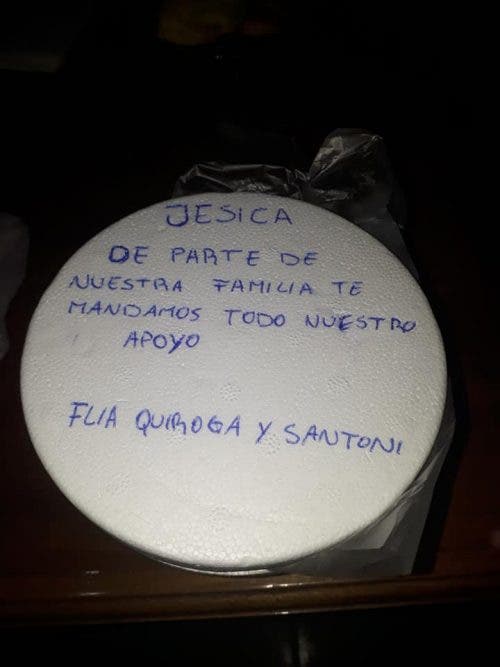 JESICA
DE PARTE DE
NUESTRA FAMILIA TE
MANDAMOS TODO NUESTRO
APOYO
FLIA QUIROGA Y SANTONI